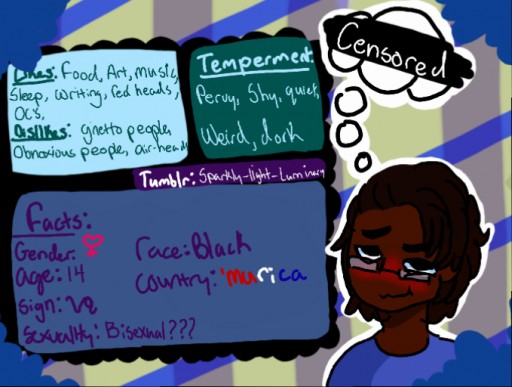 Likes: Food, Art, music,
Sleep, writing, red heads,
OC's.
Dislikes: ghetto people,
Obnoxious people, air-heads
Temperment:
Pervy, Shy, quiet,
Weird, dork
Censored
Tumblr: Sparkly-light-Luminary
Facts:
Gender: ♀
Race: Black
Age: 14
Country: 'murica
Sign:
Sexuality: Bisexual???